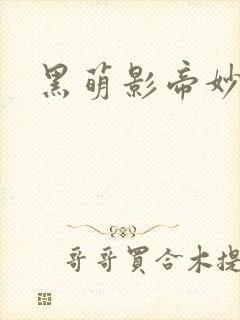 黑萌影帝妙
哥哥買合木提